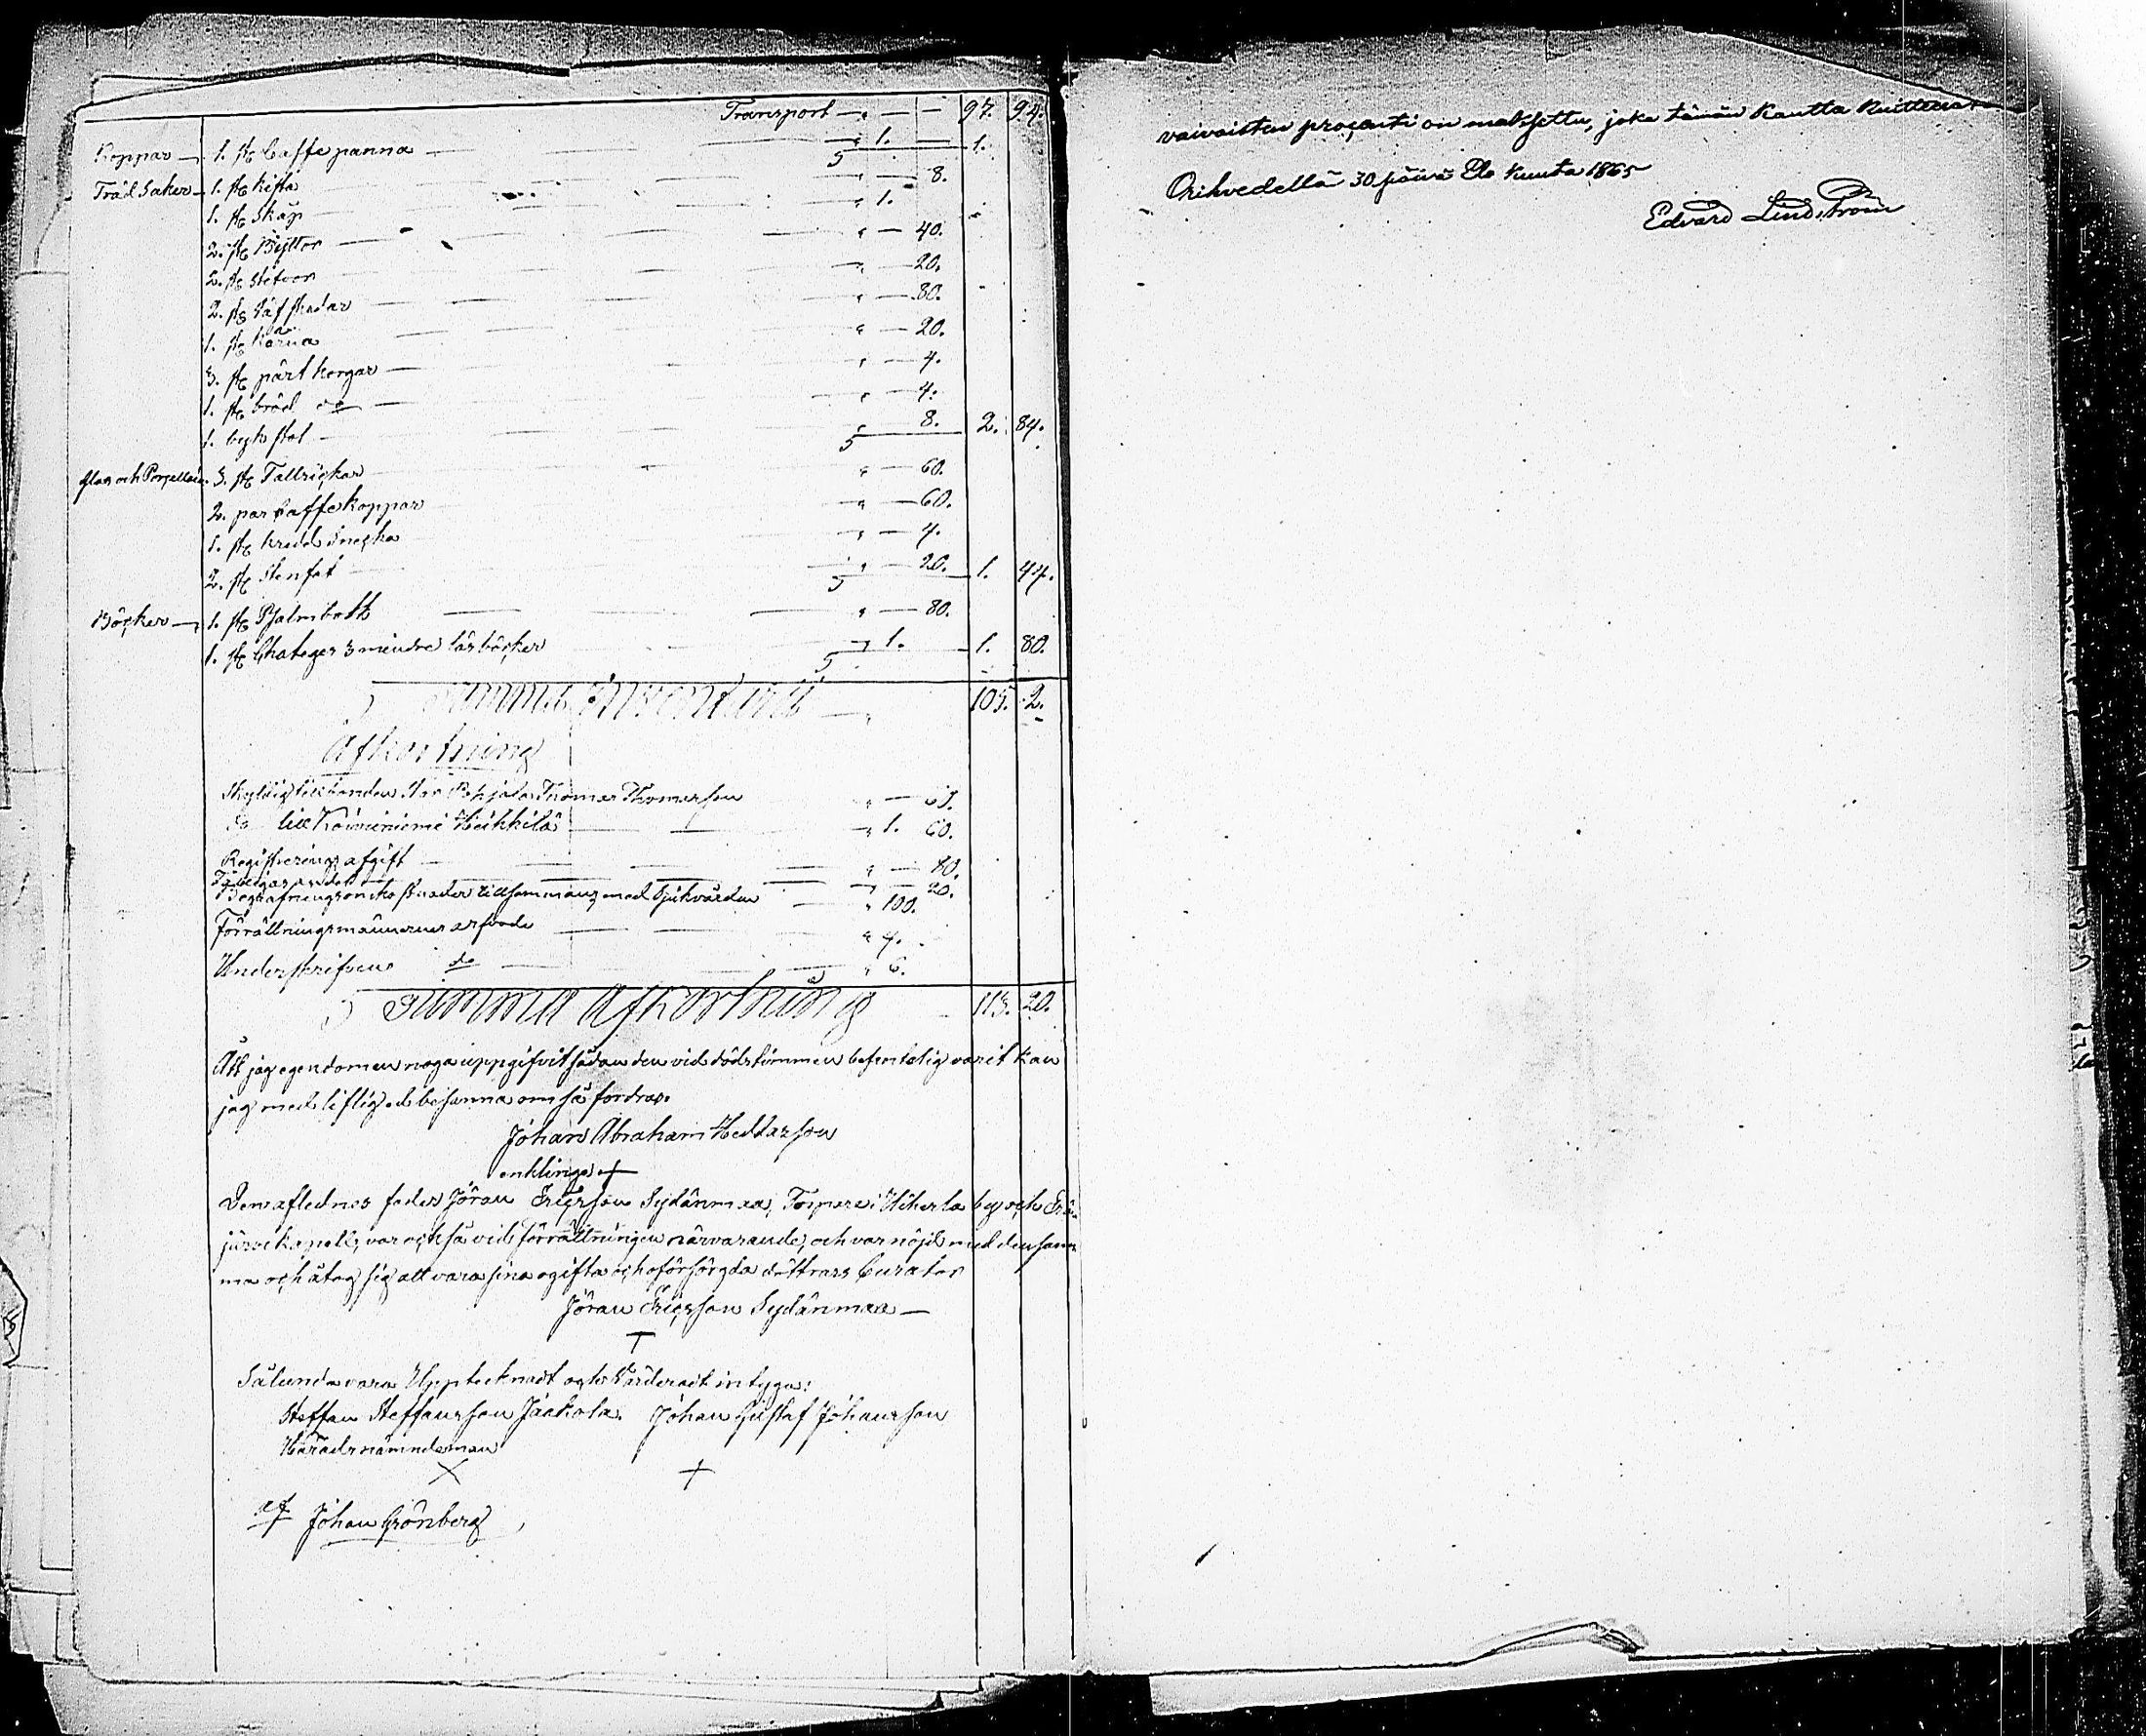 Transport — „ — — 97. 94.
Koppar — 1. st Caffe panna — „ 1. — 1.
Träd Saker — 1. st kista — „ — 8.
1. st skåp — „ 1.
2. st Byttor — „ — 40.
2. st stäfvor — „ — 20.
2. st — „ — 80.
1. st kärna — „ — 20.
3. st pärt korgar — „ — 4.
1. st bröd do — „ — 4.
1. byk stol — „ 8. 2. 84.
Glas och Porcellain. 3. st Tallrickar „ — 60.
2. par Caffe Koppar „ — 60.
1. st „ — 4.
2. st Stenfat „ — 20. 1. 44.
Böcker — 1. st Psalmbok — „ — 80.
1. st Chateges 3 mindre läsböcker „ 1. 1. 80.
Summa Inventarii — „ 105. 2.
Afkortning
Skyldig till bonden Pohjala Thomas Thomasson „ —
do till Koiviniemi Heikkilä — „ 1. 60.
Registreringsafgift — „ — 80.
— „ — 20.
Begrafningsomkostnader tillsammans med sjukvården — „ 100.
Förrättningsmännernes arfvode — „ 4.
Underskrifven do — „ 6.
Summa Afkortning 113. 20.
Att jag egendomen noga uppgifvit sådan den vid dödstimmen befintelig varit kan
jag med liflig ed besanna om så fordras.
Johan Abraham Heddarson
enkling +
Den aflednes fader Jöran Ericsson Sydänmaa, Torpare i by och Erä-
järvi kapell, var också vid förrättningen närvarande, och var nöjd med densam
ma och åtog sig att vara sina ogifta och oförsörgda döttrars Curator
Jöran Ericsson Sydänmaa —
T
Sålunda vara Upptecknadt och Värderadt intyga:
Steffan Steffansson Jaakola. Johan Gustaf Johansson
Häradsnämndeman
X +
af Johan Grönberg
vaivaisten procenti on maksettu, joka tämän Kautta kuitteerat
Orihvedellä 30 päivä Elo Kuuta 1865
Edvard Lindström